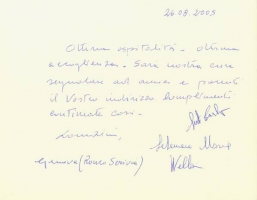 26.08.2005
Ottima ospitalità - ottima
accoglienza. Sarà nostra cura
segnalare ad amici e parenti
il Vostro indirizzo. Complimenti
continuate così.
Genova (Ronco Scrivia)